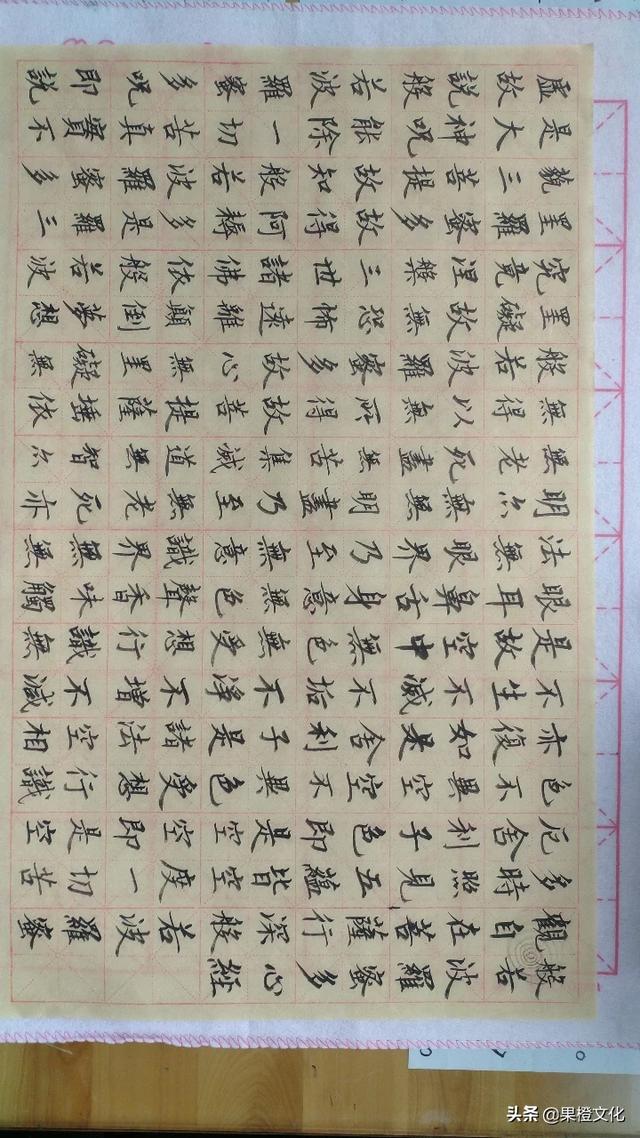 般若波羅蜜多心經
觀自在菩薩行深般若波羅蜜
多時照見五蘊皆空度一切苦
厄舍利子色即是空空即是空
色不異空空不異色受想行識
亦復如是舍利子是諸法空相
不生不滅不垢不淨不增不減
是故空中無色無受想行識無
眼耳鼻舌身意無色聲香味觸
法無眼界乃至無意識界無無
明亦無無明盡乃至無老死亦
無老死盡無苦集滅道無智亦
無得以無所得故菩提薩埵依
般若波羅蜜多故心無罣礙無
罣礙故無恐怖遠離顛倒夢想
究竟涅槃三世諸佛依般若波
罣羅蜜多故得阿耨多是羅三
藐三菩提故知般若波羅蜜多
是大神呪能除一切苦真實不
虛故說般若波羅蜜多呪即說
头条 @果橙文化